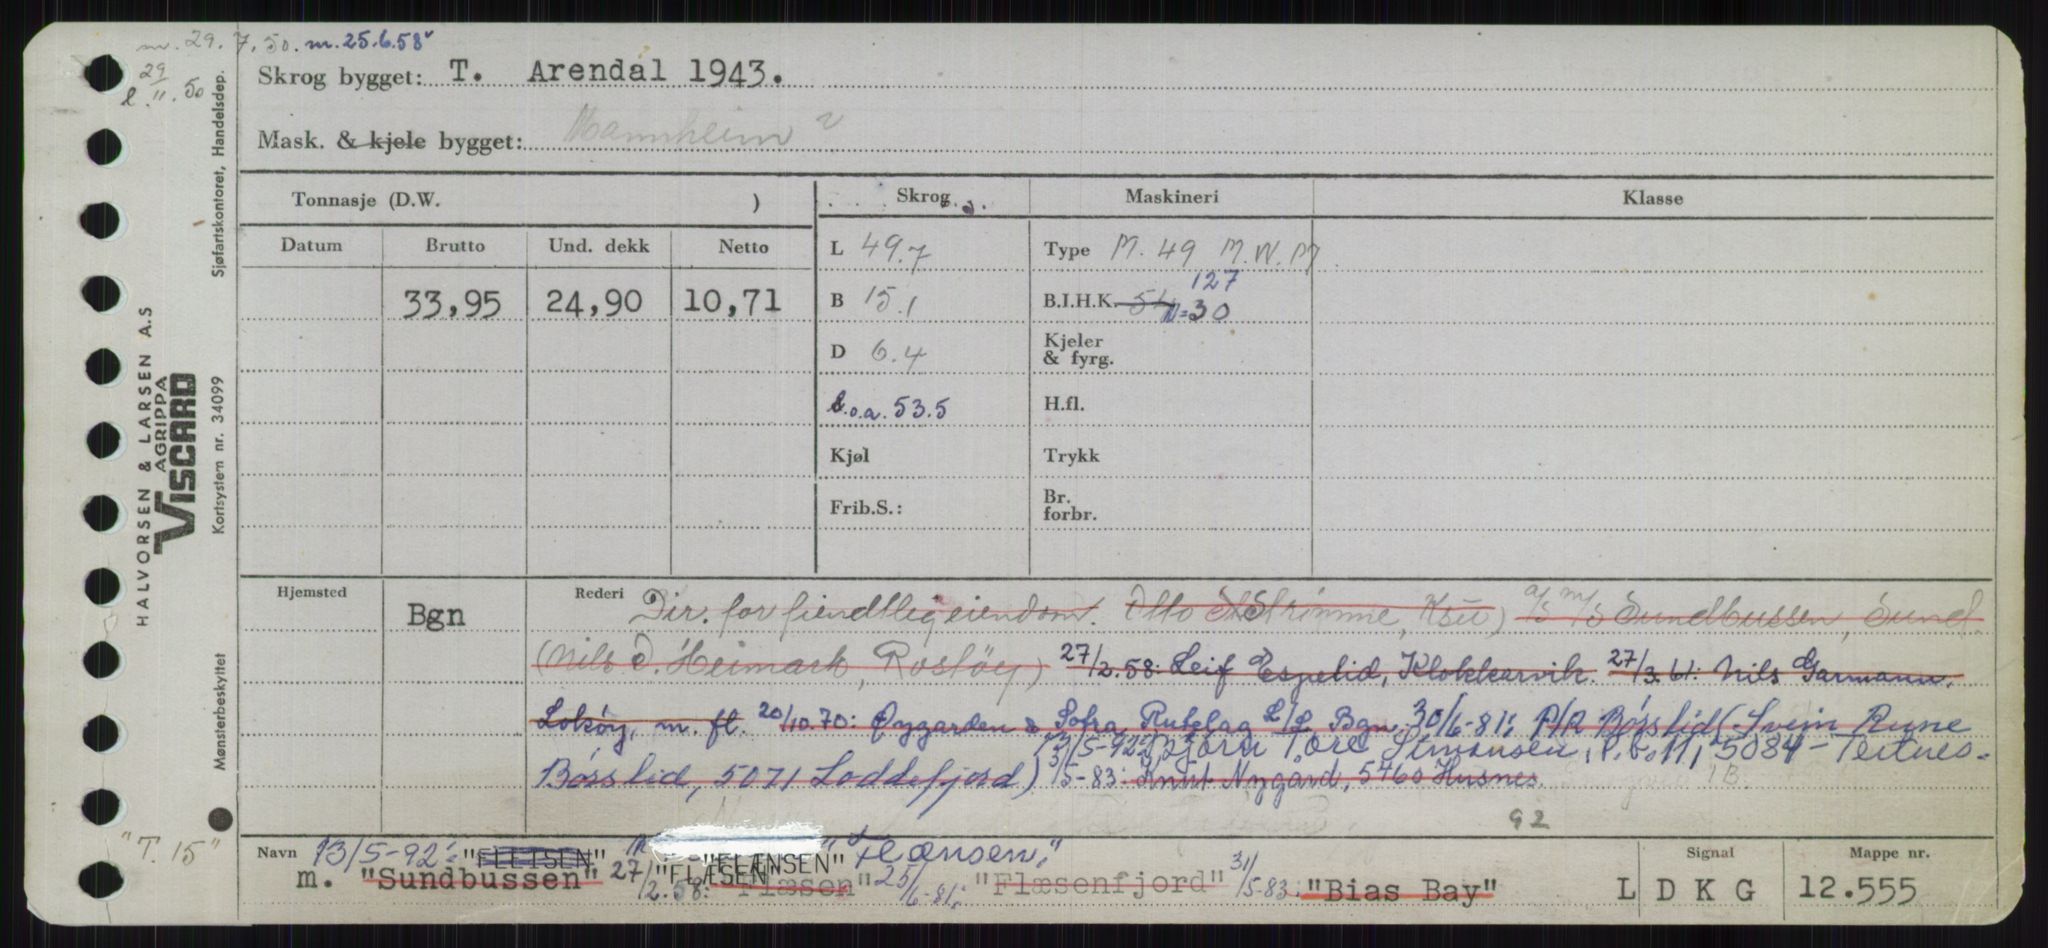 m. 29. 7. 50. m. 25.6.58
29
l. 11. 50
Skrog bygget: T. Arendal 1943.
Mask. & kjele bygget: Mannheim
Tonnasje (D.W. )
Skrog
Maskineri
Klasse
Datum Brutto Und. dekk Netto
L 49.7
Type M. 49 M.W.M
33,95 24,90 10,71
B 15.1
127
B.I.H.K. 54 N=30
D 6.4
Kjeler
& fyrg.
L.o.a. 53.5
H.fl.
Kjøl
Trykk
Frib.S.:
Br.
forbr.
Hjemsted
Bgn
Rederi Dir. for fiendtlig eiendom. Otto Strømme, Ksu) a/s m/s Sundbussen, Sund.
(Nils O. Heimark, Rostøy) 27/2.58: Leif Espelid, Klokkarvik. 27/3.61: Nils Garmann.
Lokøy, m. fl. 20/10.70: Øygarden & Sotra Rutelag L/L Bgn. 30/6-81: P/R Børslid (Svein Rune
13/5-92: Bjørn Tore Simonsen, P.b. 11, 5084 - Tertnes.
Børslid, 5071 Loddefjord) 3/5-83: Knut Nygard, 5460 Husnes.
1B.
92
"T. 15"
Navn 13/5-92: "FLETSEN" "FLÆNSEN" "Flænsen"
m. "Sundbussen" 27/2.58: "FLÆSEN" "Flæsen" 25/6-81: "Flæsenfjord" 31/5-83: "Bias Bay"
Signal
L D K G
Mappe nr.
12.555
HALVORSEN & LARSEN A.S
AGRIPPA
VISCARD
Sjøfartskontoret, Handelsdep.
Kortsystem nr. 34099
Mønsterbeskyttet